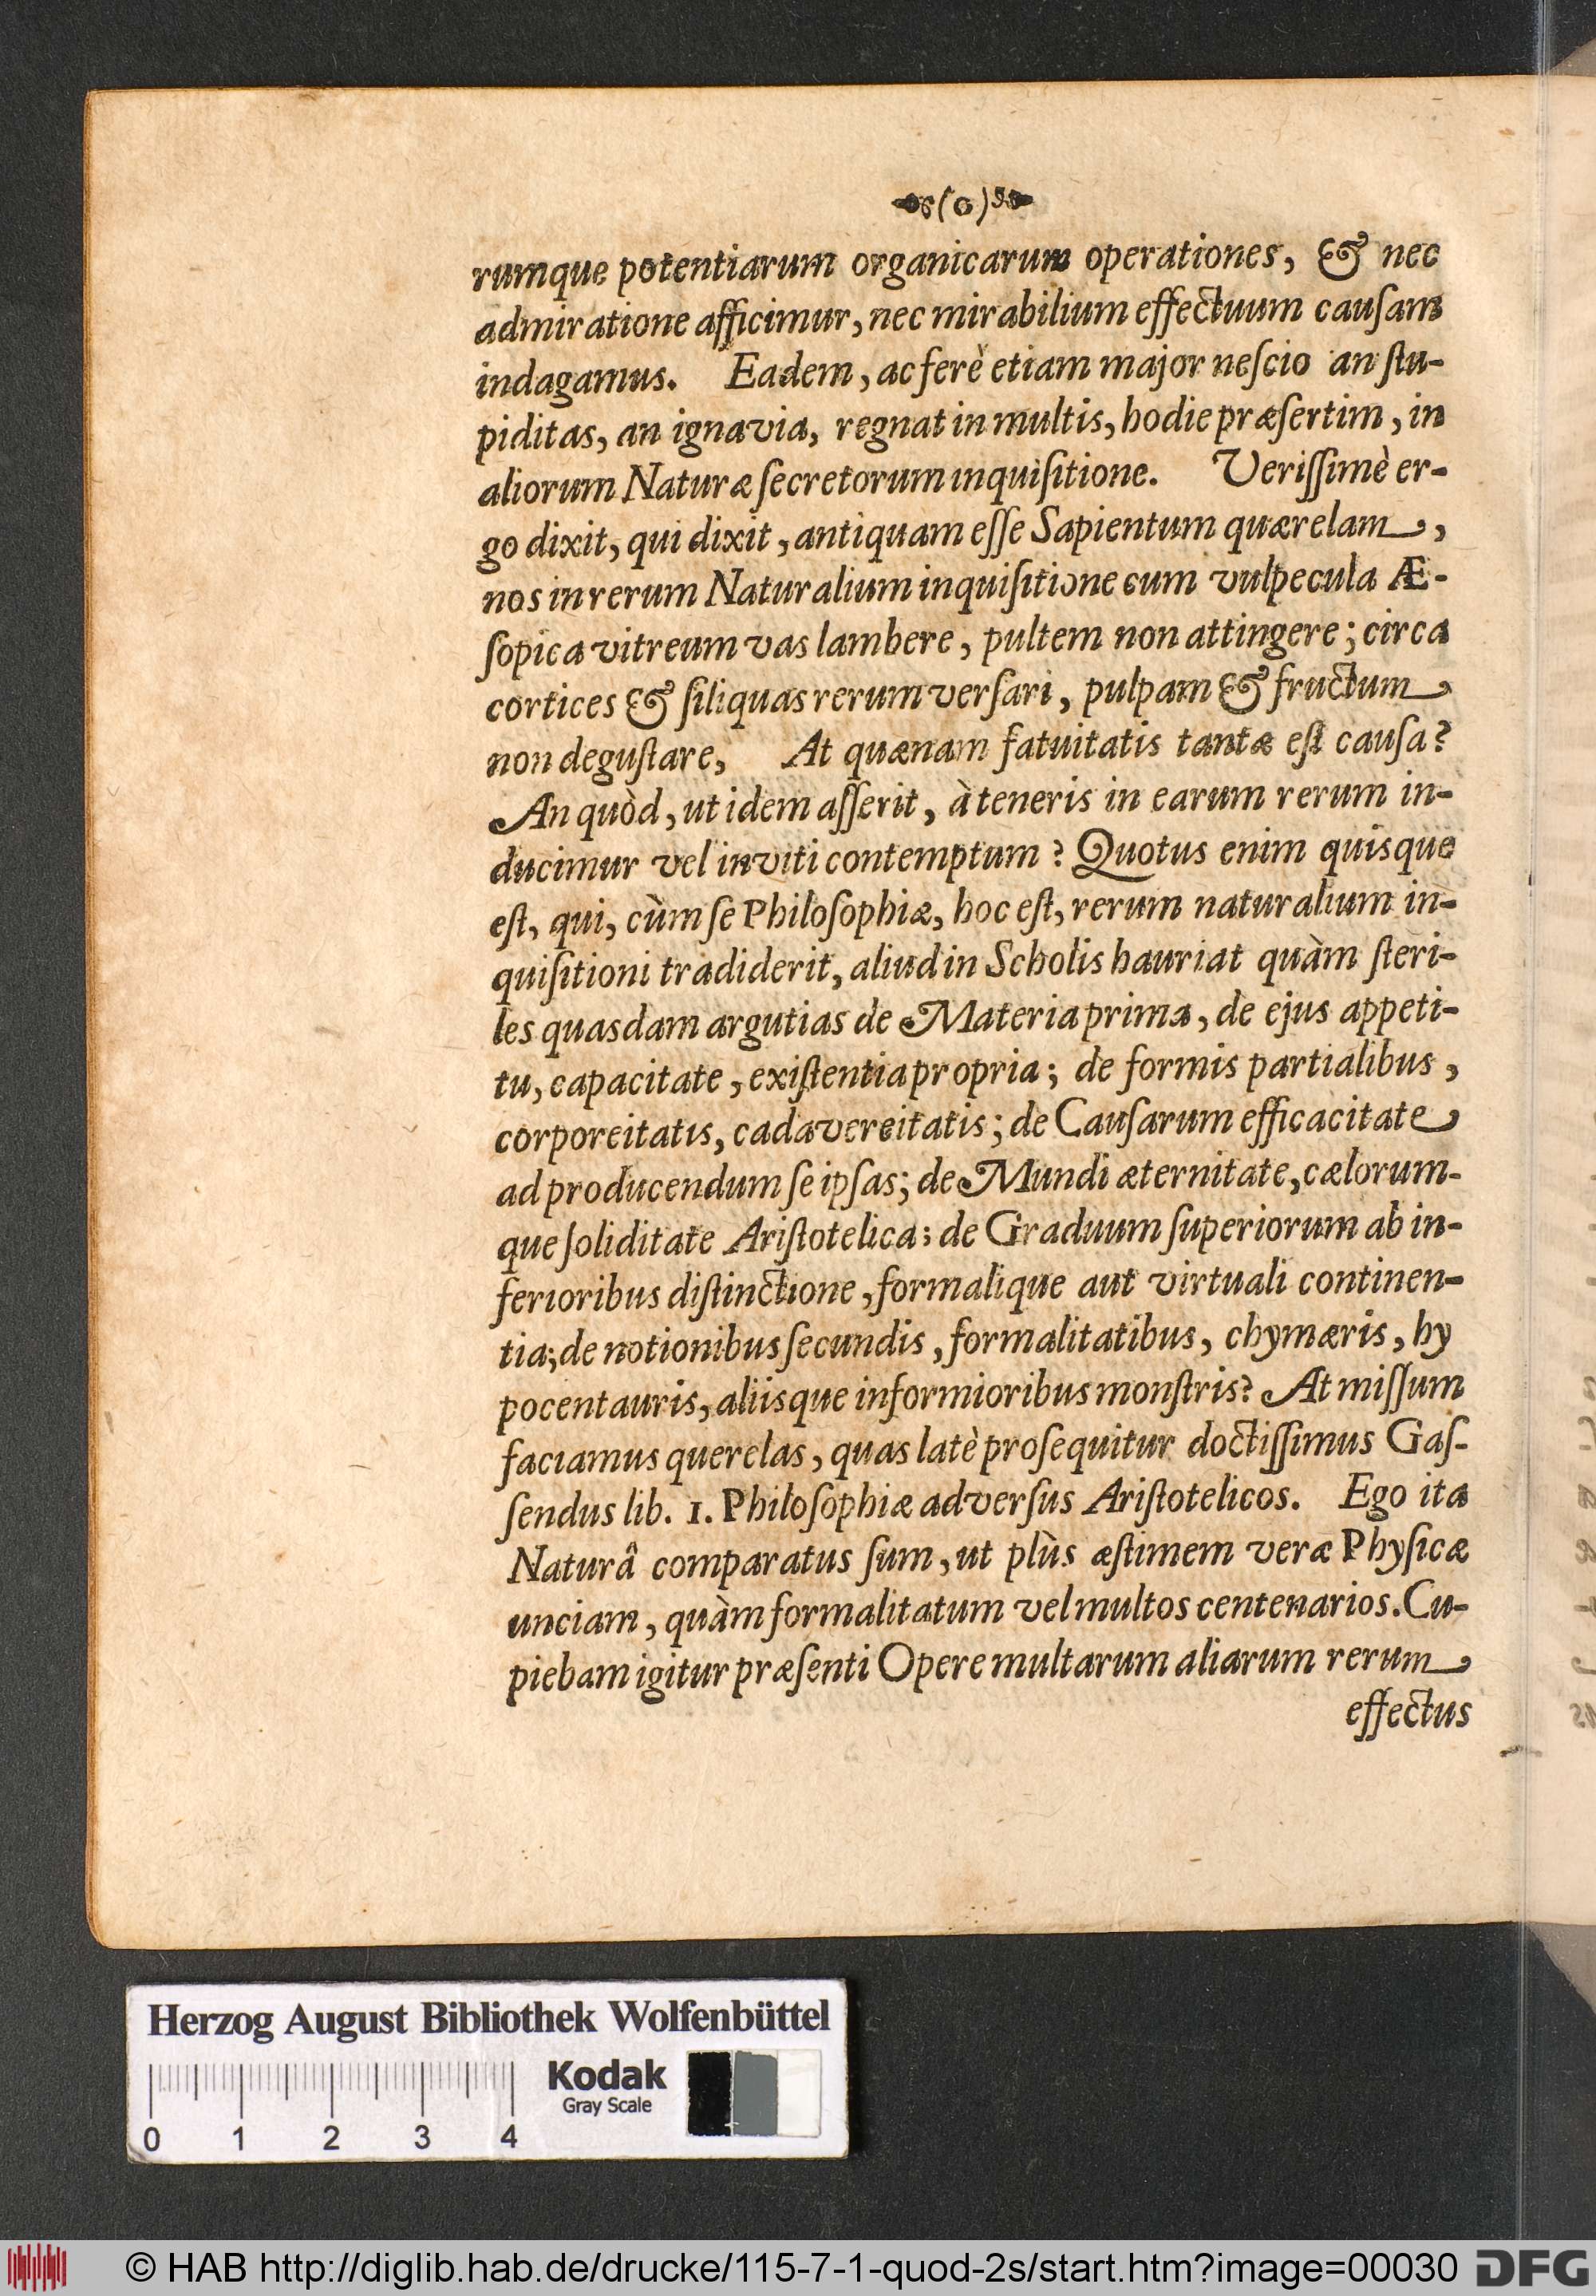 (o)
rumque potentiarum organicarum operationes, & nec
admiratione afficimur, nec mirabilium effectuum cauſam
indagamus. Eadem, ac ferè etiam major neſcio an ſtu-
piditas, an ignavia, regnat in multis, hodie præſertim, in
aliorum Naturæ ſecretorum inquiſitione. Veriſſimè er-
go dixit, qui dixit, antiquam eſſe Sapientum quærelam,
nos in rerum Naturalium inquiſitione cum vulpecula Æ-
ſopica vitreum vas lambere, pultem non attingere; circa
cortices & ſiliquas rerum verſari, pulpam & fructum
non deguſtare, At quænam fatuitatis tantæ eſt cauſa?
An quòd, ut idem aſſerit, à teneris in earum rerum in-
ducimur vel inviti contemptum? Quotus enim quisque
eſt, qui, cùm ſe Philoſophiæ, hoc eſt, rerum naturalium in-
quiſitioni tradiderit, aliud in Scholis hauriat quàm ſteri-
les quasdam argutias de Materia prima, de ejus appeti-
tu, capacitate, exiſtentia propria; de formis partialibus,
corporeitatis, cadavereitatis; de Cauſarum efficacitate
ad producendum ſe ipſas; de Mundi æternitate, cælorum-
que ſoliditate Ariſtotelica; de Graduum ſuperiorum ab in-
ferioribus diſtinctione, formalique aut virtuali continen-
tia; de notionibus ſecundis, formalitatibus, chymæris, hy
pocentauris, aliisque informioribus monſtris? At miſſum
faciamus querelas, quas latè proſequitur doctiſſimus Gaſ-
ſendus lib. 1. Philoſophiæ adverſus Ariſtotelicos. Ego ita
Naturâ comparatus ſum, ut plùs æſtimem veræ Phyſicæ
unciam, quàm formalitatum vel multos centenarios. Cu-
piebam igitur præſenti Opere multarum aliarum rerum
effectus
Herzog August Bibliothek Wolfenbüttel
Kodak
Gray Scale
0 1 2 3 4
© HAB http://diglib.hab.de/drucke/115-7-1-quod-2s/start.htm?image=00030 DFG